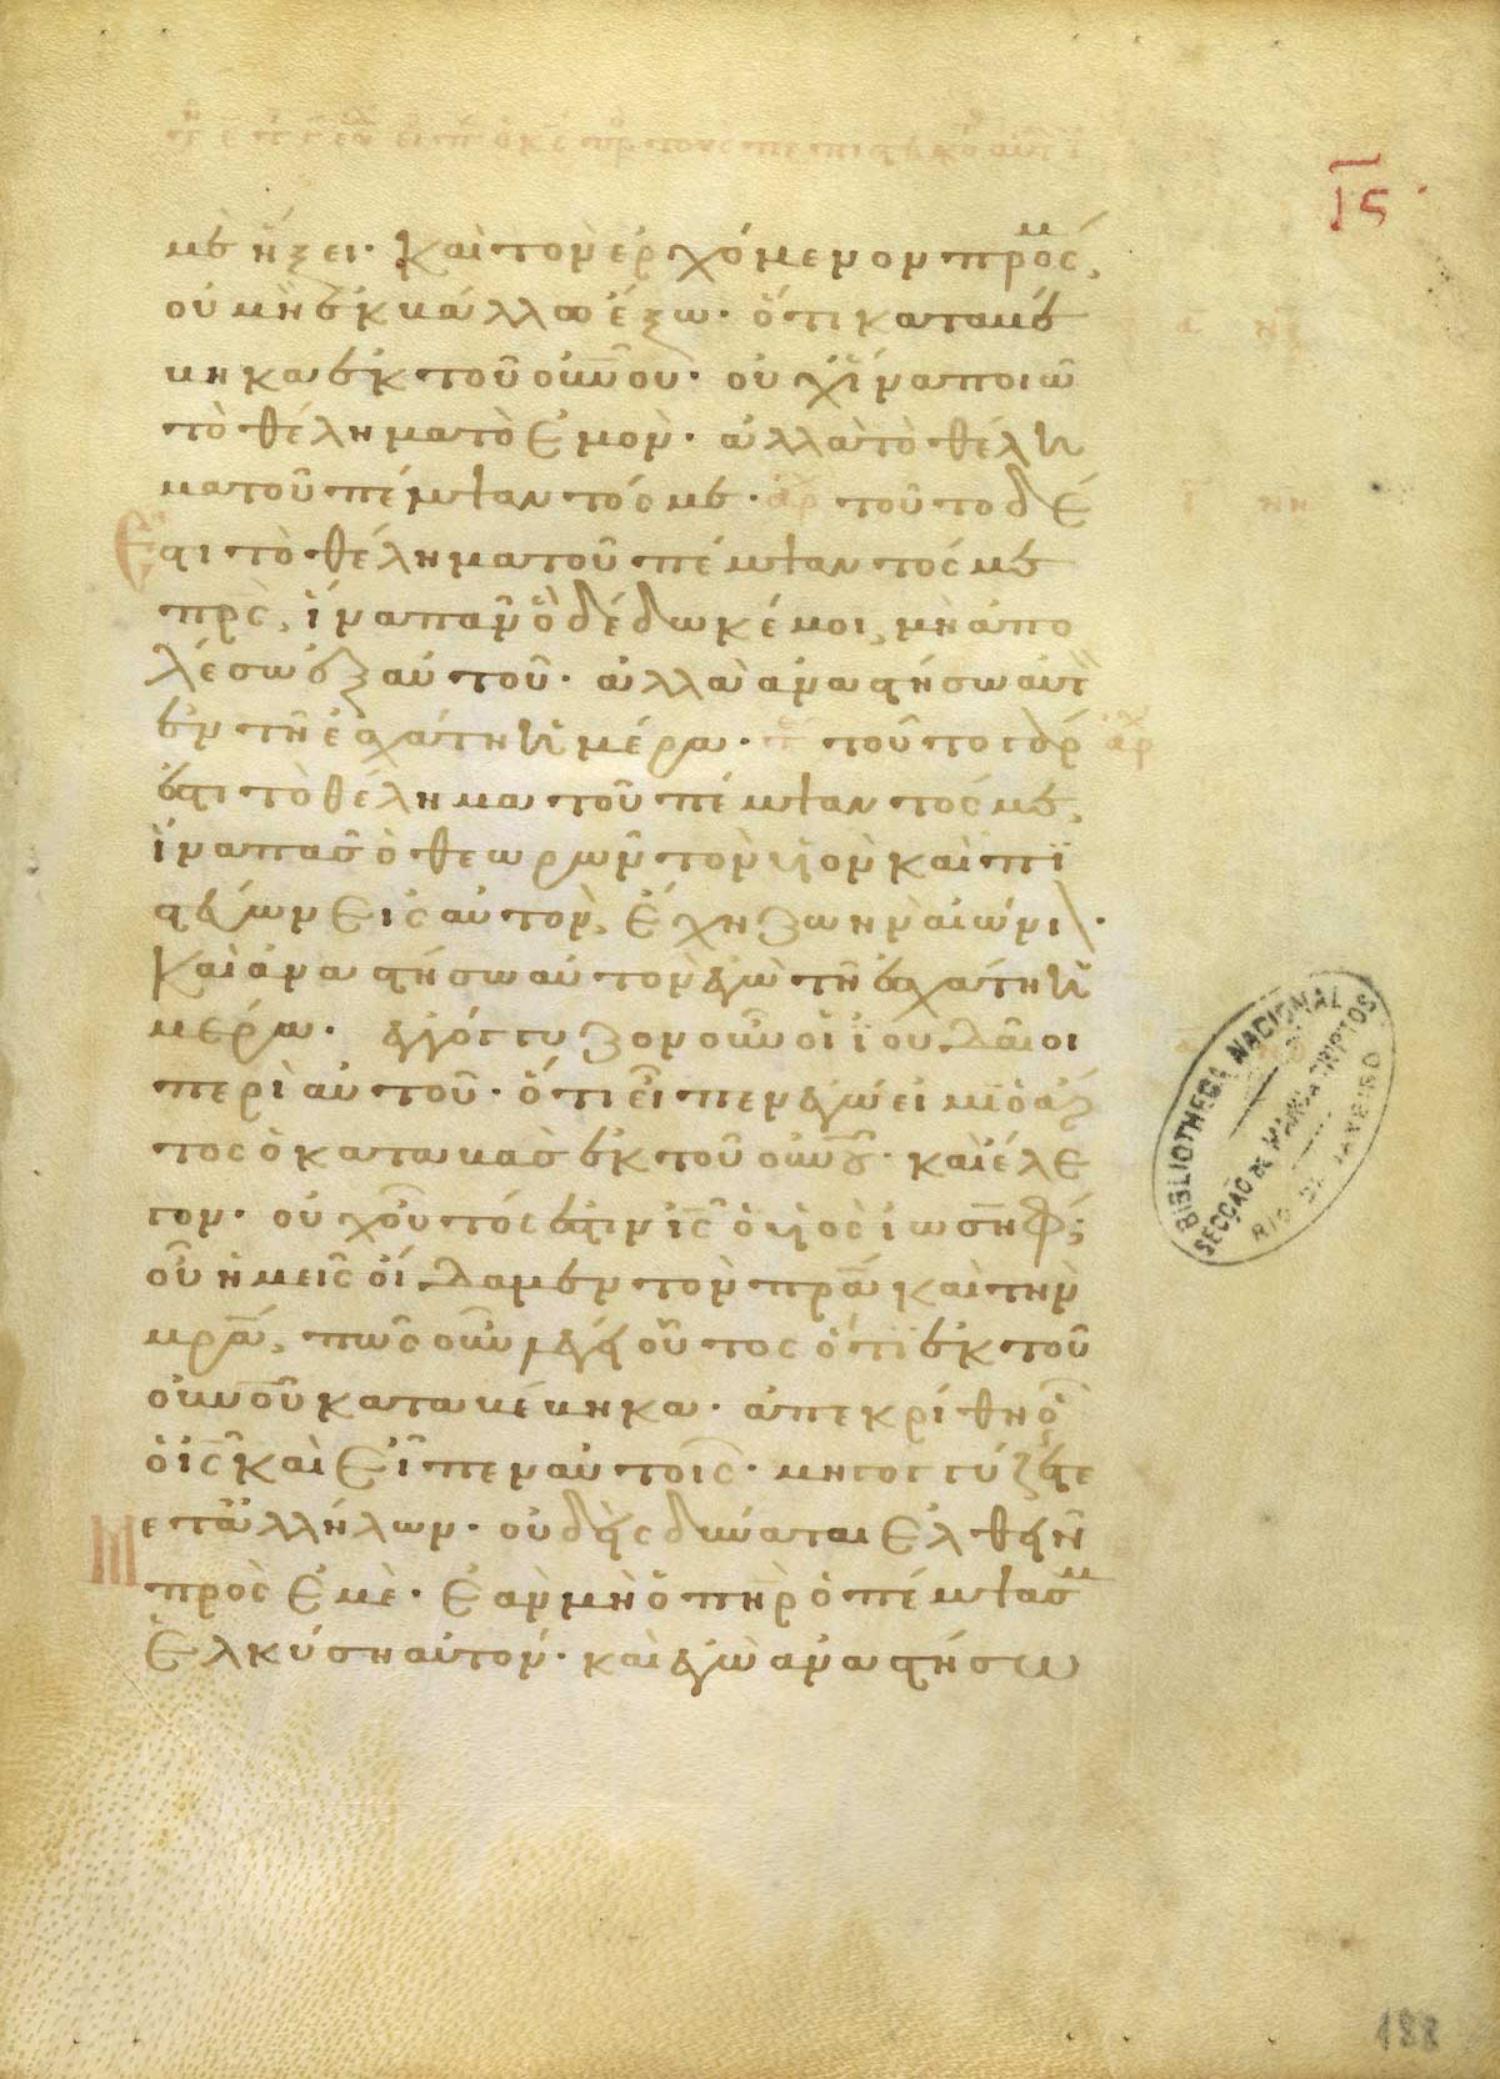 ις·
με ἥξει· καὶ τὸν ἐρχόμενον πρός μ,
οὐ μὴ ἐκβάλλω ἔξω· ὅτι καταβέ
βηκα ἐκ τοῦ οὐνοῦ· οὐχ ἵνα ποιῶ
τὸ θέλημα τὸ ἐμὸν· ἀλλὰ τὸ θέλη
μα τοῦ πέμψαντός με· ἀρχ τοῦτο δέ
Ἐστι τὸ θέλημα τοῦ πέμψαντός με
πρς, ἵνα πᾶν ὃ δέδωκέ μοι, μὴ ἀπο
λέσω ἐξ αὐτοῦ· ἀλλὰ ἀναστήσω αὐτ
ἐν τῆ ἐσχάτη ἡμέρα· τοῦτο γάρ ἀρχ
ἐστι τὸ θέλημα τοῦ πέμψαντός με,
ἵνα πᾶσ ὁ θεωρῶν τὸν υἱὸν καὶ πι
στεύων εἰς αὐτὸν, ἔχη ζωὴν αἰώνι\·
καὶ ἀναστήσω αὐτὸν ἐγὼ τῆ ἐσχάτη ἡ
μέρα· ἐγόγγυζον οὖν οἱ ἰουδαῖοι
περὶ αὐτοῦ· ὅτι εἶπεν ἐγώ εἰμι ὁ ἄρ
τος ὁ καταβὰσ ἐκ τοῦ οὐνοῦ· καὶ ἔλε
γον· οὐχ οὗτός ἐστιν ις ὁ υἱὸς ἰωσὴφ;
οὗ ἡμεῖς οἴδαμεν τὸν πρα καὶ τὴν
μρα, πῶς οὖν λέγει οὗτος ὅτι ἐκ τοῦ
οὐνοῦ καταβέβηκα· ἀπεκρίθη ο
ὁ ις καὶ εἶπεν αὐτοῖς· μὴ γογγύζετε
Μετ ἀλλήλων· οὐδεὶς δύναται ἐλθεῖν
πρὸς ἐμὲ· ἐὰν μὴ ὁ πηρ ὁ πέμψασ μ
ἑλκύση αὐτόν· καὶ ἐγὼ ἀναστήσω
BIBLIOTHECA NACIONAL
SECÇÃO DE MANUSCRIPTOS
RIO DE JANEIRO
188